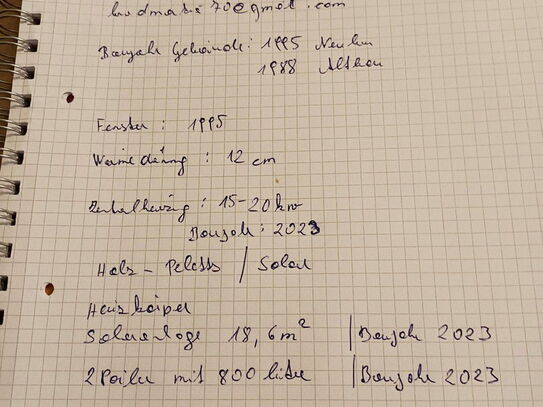 Baujahr Gebäude: 1995 Neubau
1988 Altbau
Fenster: 1995
Wärmedämung: 12 cm
Zentralheizung: 15-20 kw
Baujahr: 2023
Holz - Pelets / Solar
Heizkörper
Solaranlage 18,6 m² | Baujahr 2023
2 Poiler mit 800 liter | Baujahr 2023